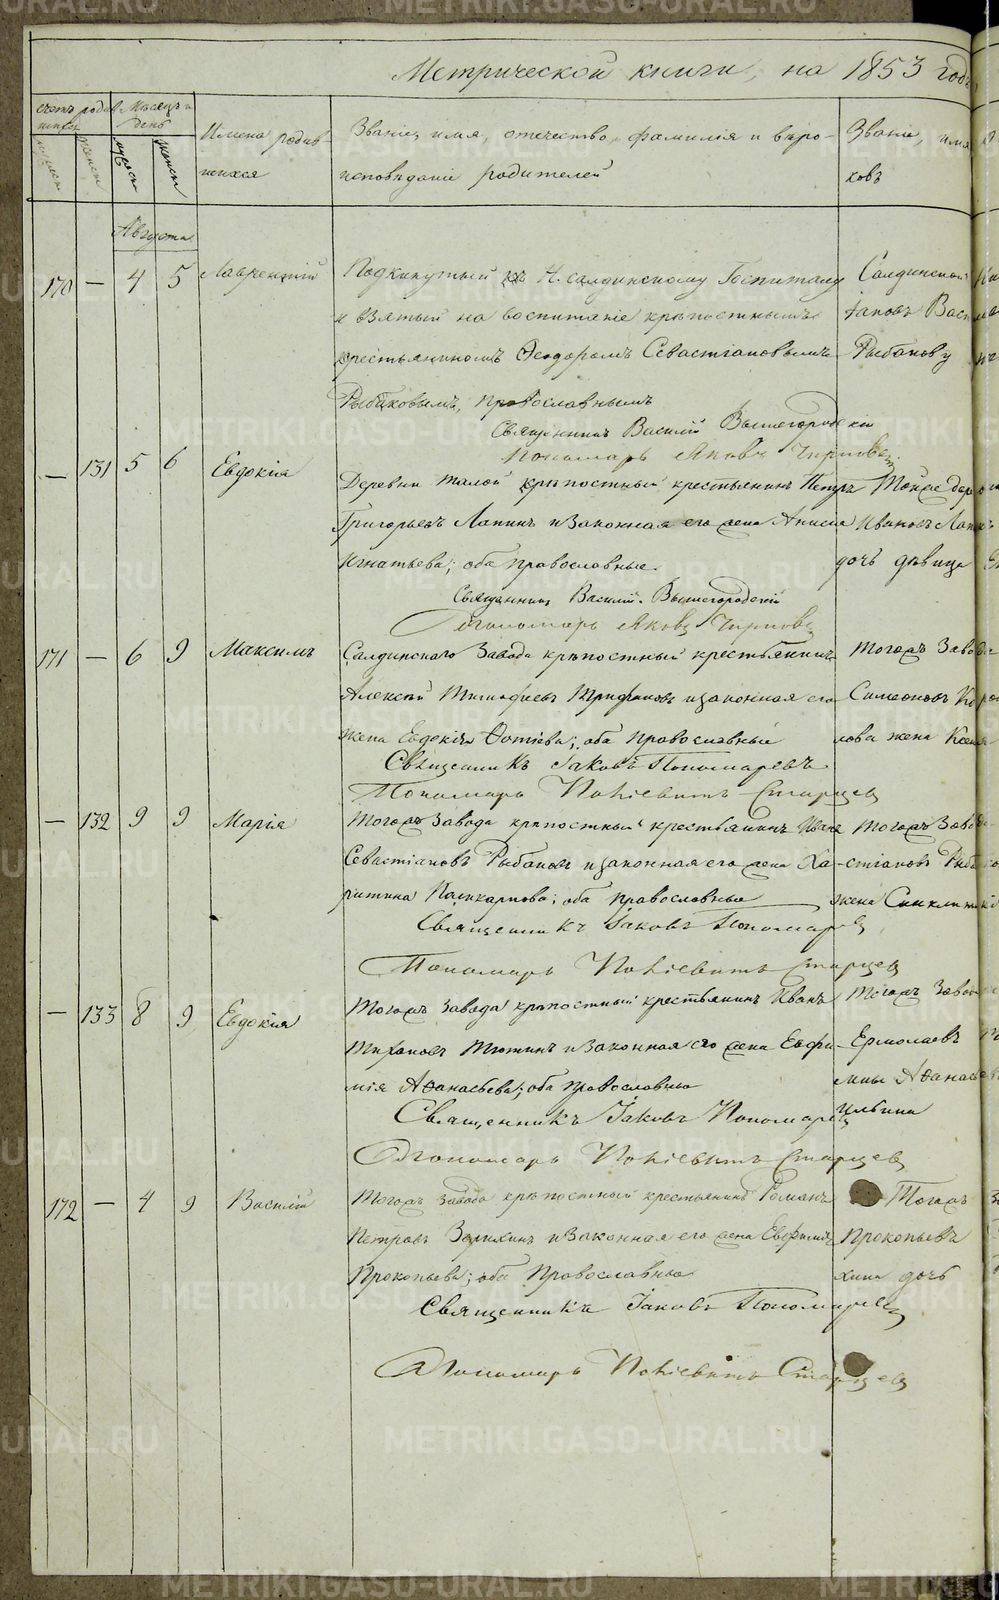 Метрической книги, на 1853 годъ
счетъ родив-
шихся
мужеск
женск
Мѣсяцъ и
день
мужеск
женск
Имена родив-
шихся
Званіе, имя, отечество, фамилія и вѣро-
исповѣданіе родителей
Званіе, имя
ковъ
Августа
170 — 4 5 Лаврентій
Подкинутый къ Н. салдинскому Госпиталу
и взятый на воспитаніе крѣпостнымъ
крестьяниномъ Ѳеодоромъ Севастіановымъ
Рыбаковымъ, православнымъ
Священникъ Василій Вышегородскій
Пономарь Яковъ
Салдинской
фановъ Вас
Рыбакову
— 131 5 6 Евдокія
Деревни Малой крѣпостный крестьянинъ Петръ
Григорьевъ Лапинъ и законная его жена Анисія
Игнатьева; оба православные.
Священникъ Василій Вышегородскій
Пономарь Яковъ
Тойже дерев
Ивановъ Лапин
дочь дѣвица
171 — 6 9 Максимъ
Салдинскаго Завода крѣпостный крестьянинъ
Алексѣй Тимофеевъ Трифановъ и законная его
жена Евдокія Фотіева; оба православные
Священникъ Іаковъ Пономаревъ
Пономарь Старцев
Тогожъ Завода
Симеоновъ
лова жена Ксенія
— 132 9 9 Марія
Тогожъ Завода крѣпостный крестьянинъ Иванъ
Севастіановъ Рыбаковъ и законная его жена Ха-
ритина Поликарпова; оба православные
Священникъ Іаковъ Пономарев
Пономарь Старцев
Тогожъ Завода
стіановъ Рыба
жена Синклитикія
— 133 8 9 Евдокія
Тогожъ Завода крѣпостный крестьянинъ Иванъ
Тихановъ Тютинъ и законная его жена Евфи-
мія Аѳанасьева; оба православные
Священникъ Іаковъ Пономарев
Пономарь Старцев
Тогожъ Завода
Ермолаевъ
Аѳанась
Ильина
172 — 4 9 Василій
Тогожъ завода крѣпостный крестьянинъ Романъ
Петровъ Зорихинъ и законная его жена Евфимія
Прокопьева; оба Православные
Священникъ Іаковъ Пономарев
Пономарь Старцев
Тогожъ
Прокопьевъ
хина дочь
METRIKI.GASO-URAL.RU